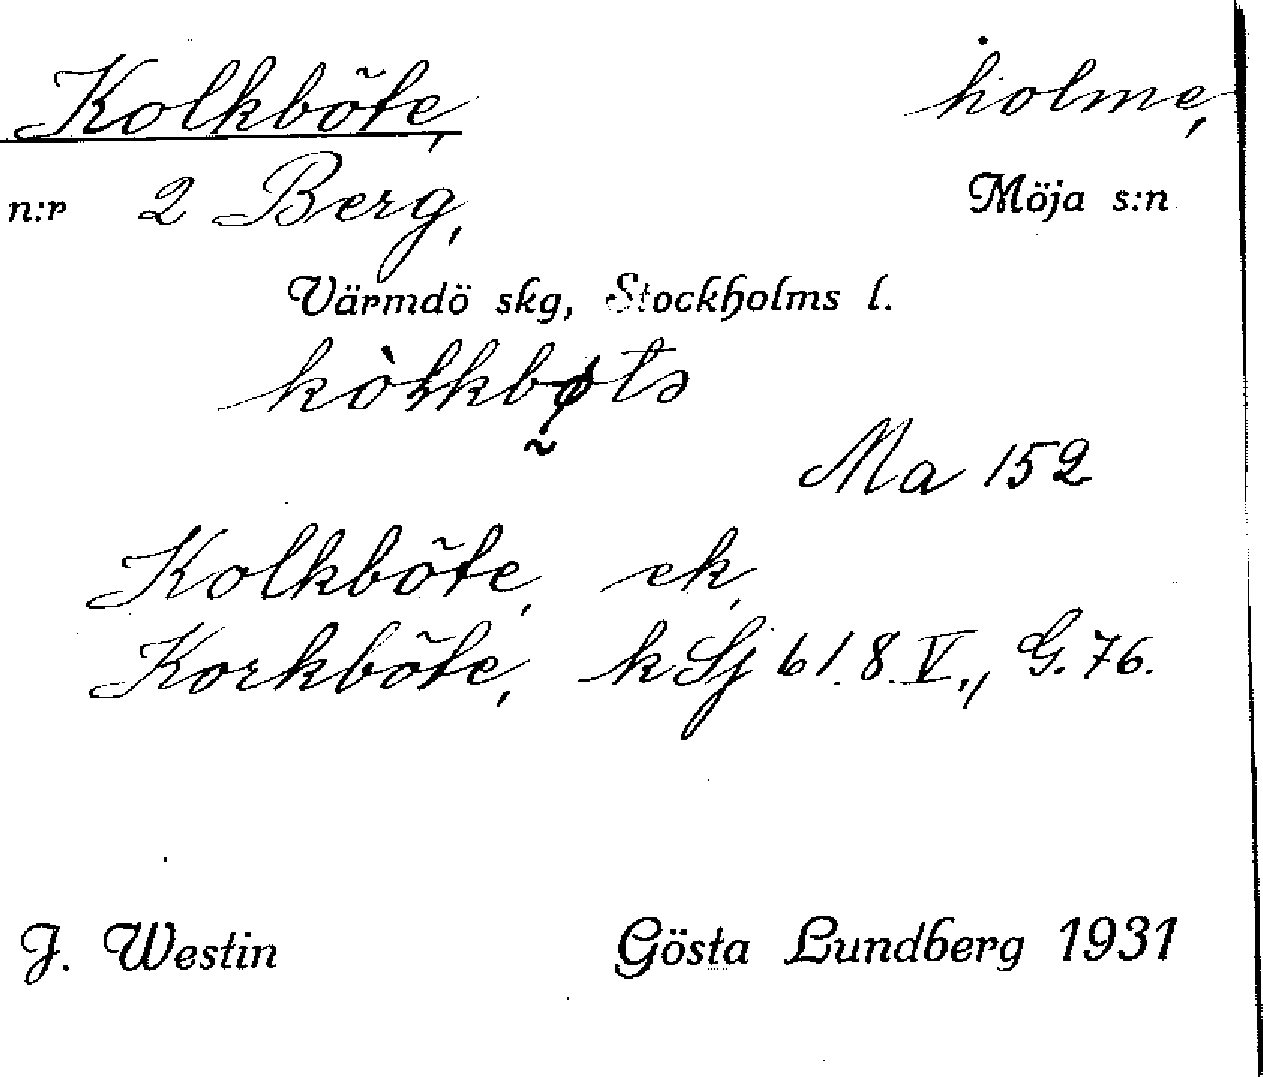 Kolkböte, holme,
n:r 2 Berg, Möja s:n
Värmdö skg, Stockholms l.
Ma 152
Kolkböte, ek,
Korkböte, k Sj 61.8.V., G. 76.
J. Westin Gösta Lundberg 1931